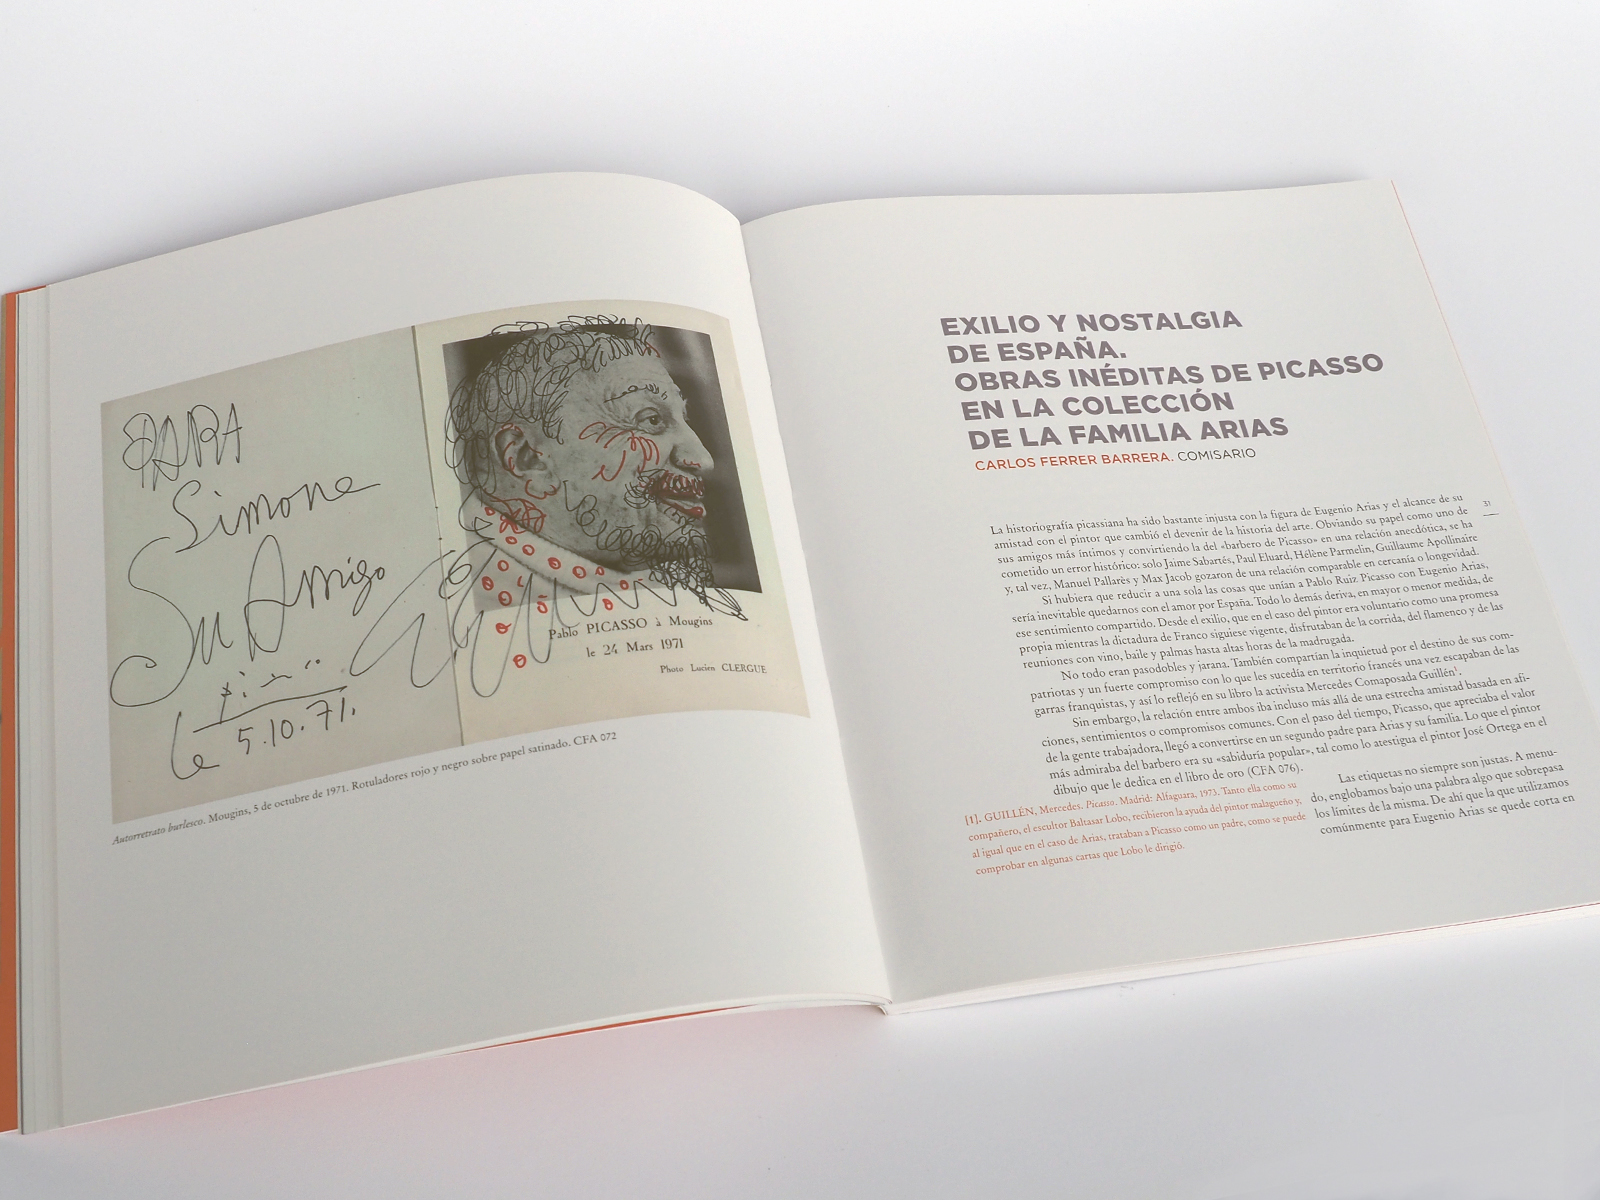 PARA
Simone
Su Amigo
le
5.10.71.
Pablo PICASSO à Mougins
le 24 Mars 1971
Photo Lucien CLERGUE
Autorretrato burlesco. Mougins, 5 de octubre de 1971. Rotuladores rojo y negro sobre papel satinado. CFA 072
EXILIO Y NOSTALGIA
DE ESPAÑA.
OBRAS INÉDITAS DE PICASSO
EN LA COLECCIÓN
DE LA FAMILIA ARIAS
CARLOS FERRER BARRERA. COMISARIO
31
La historiografía picassiana ha sido bastante injusta con la figura de Eugenio Arias y el alcance de su
amistad con el pintor que cambió el devenir de la historia del arte. Obviando su papel como uno de
sus amigos más íntimos y convirtiendo la del «barbero de Picasso» en una relación anecdótica, se ha
cometido un error histórico: solo Jaime Sabartés, Paul Eluard, Hélène Parmelin, Guillaume Apollinaire
y, tal vez, Manuel Pallarès y Max Jacob gozaron de una relación comparable en cercanía o longevidad.
Si hubiera que reducir a una sola las cosas que unían a Pablo Ruiz Picasso con Eugenio Arias,
sería inevitable quedarnos con el amor por España. Todo lo demás deriva, en mayor o menor medida, de
ese sentimiento compartido. Desde el exilio, que en el caso del pintor era voluntario como una promesa
propia mientras la dictadura de Franco siguiese vigente, disfrutaban de la corrida, del flamenco y de las
reuniones con vino, baile y palmas hasta altas horas de la madrugada.
No todo eran pasodobles y jarana. También compartían la inquietud por el destino de sus com-
patriotas y un fuerte compromiso con lo que les sucedía en territorio francés una vez escapaban de las
garras franquistas, y así lo reflejó en su libro la activista Mercedes Comaposada Guillén¹.
Sin embargo, la relación entre ambos iba incluso más allá de una estrecha amistad basada en afi-
ciones, sentimientos o compromisos comunes. Con el paso del tiempo, Picasso, que apreciaba el valor
de la gente trabajadora, llegó a convertirse en un segundo padre para Arias y su familia. Lo que el pintor
más admiraba del barbero era su «sabiduría popular», tal como lo atestigua el pintor José Ortega en el
dibujo que le dedica en el libro de oro (CFA 076).
Las etiquetas no siempre son justas. A menu-
do, englobamos bajo una palabra algo que sobrepasa
los límites de la misma. De ahí que la que utilizamos
comúnmente para Eugenio Arias se quede corta en
[1]. GUILLÉN, Mercedes. Picasso. Madrid: Alfaguara, 1973. Tanto ella como su
compañero, el escultor Baltasar Lobo, recibieron la ayuda del pintor malagueño y,
al igual que en el caso de Arias, trataban a Picasso como un padre, como se puede
comprobar en algunas cartas que Lobo le dirigió.